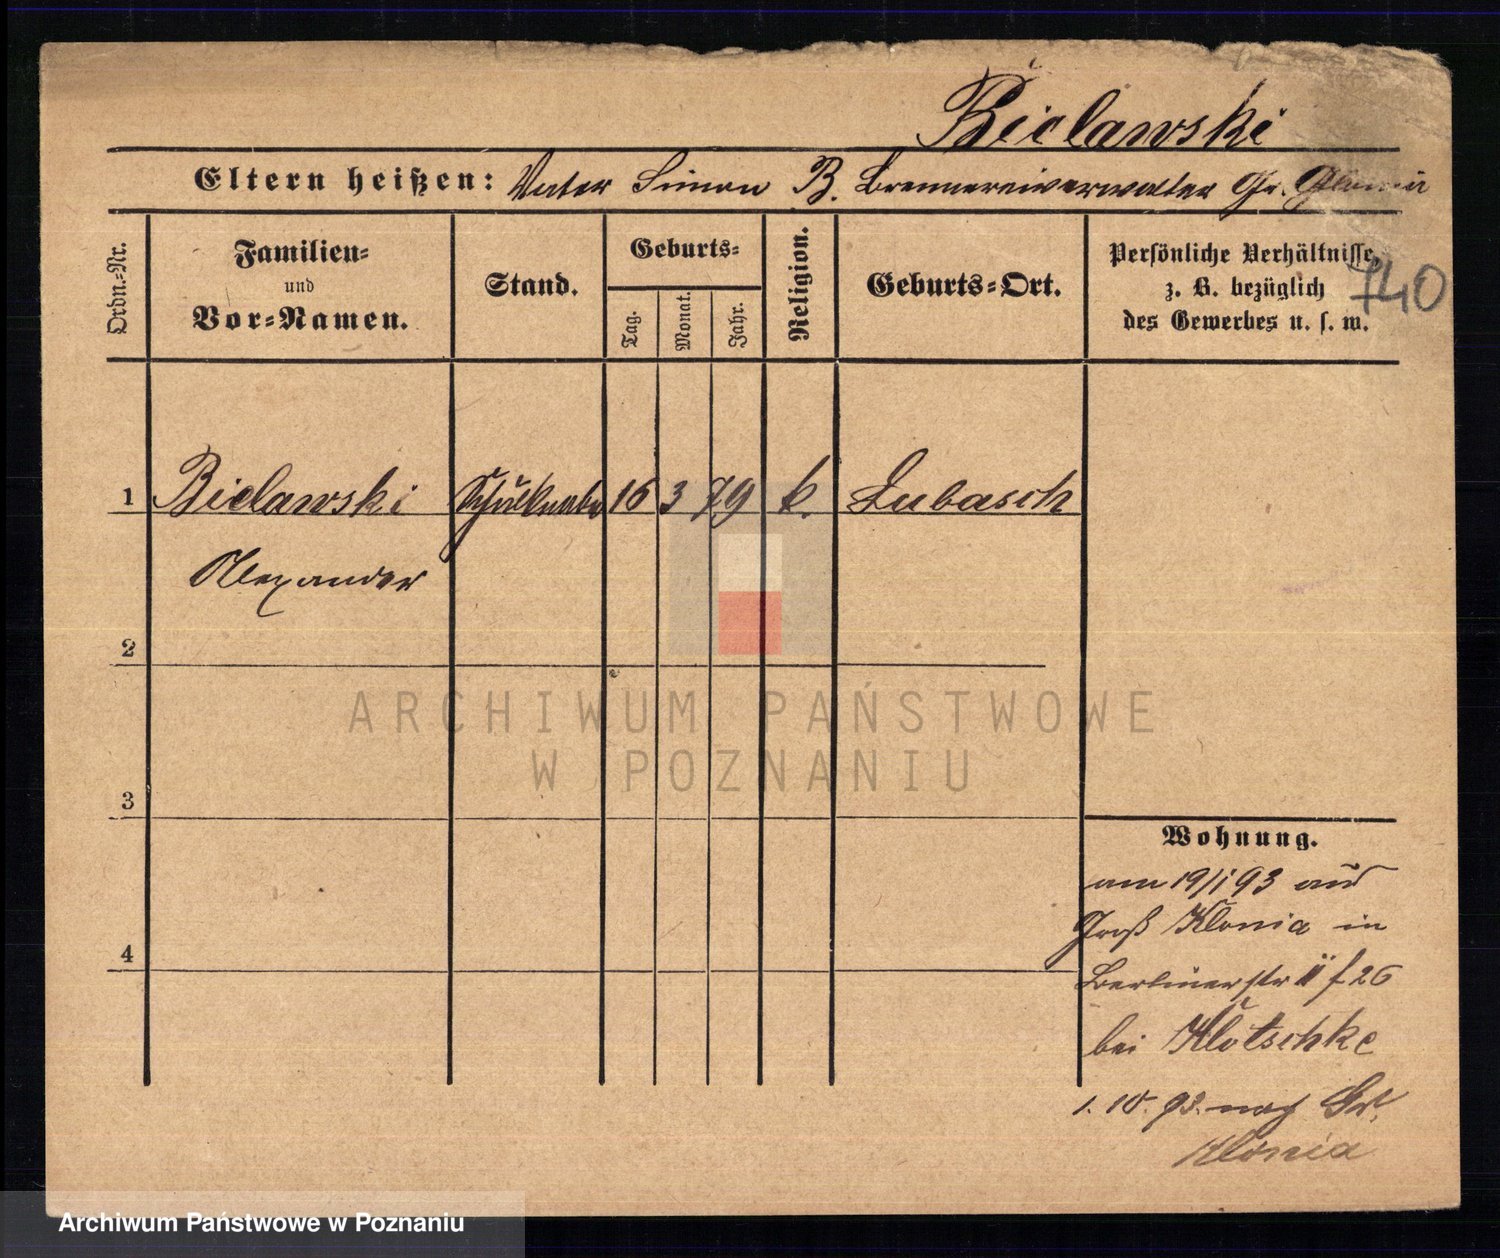 Bielawski
Eltern heißen: Vater Simon B. Brennereiverwalter Gr.
Ordn.-Nr.
Familien-
und
Vor-Namen.
Stand.
Geburts-
Tag.
Monat.
Jahr.
Religion.
Geburts-Ort.
Persönliche Verhältnisse,
z. B. bezüglich
des Gewerbes u. s. w.
740
1 Bielawski Schulknabe 16 3 79 k. Lubasch
Alexander
2
3
4
ARCHIWUM PAŃSTWOWE
W POZNANIU
Wohnung.
am 19/1 93 aus
Groß Klonia in
Berlinerstr II f 26
bei Klotschke
1. 10. 93. nach Gr.
Klonia
Archiwum Państwowe w Poznaniu